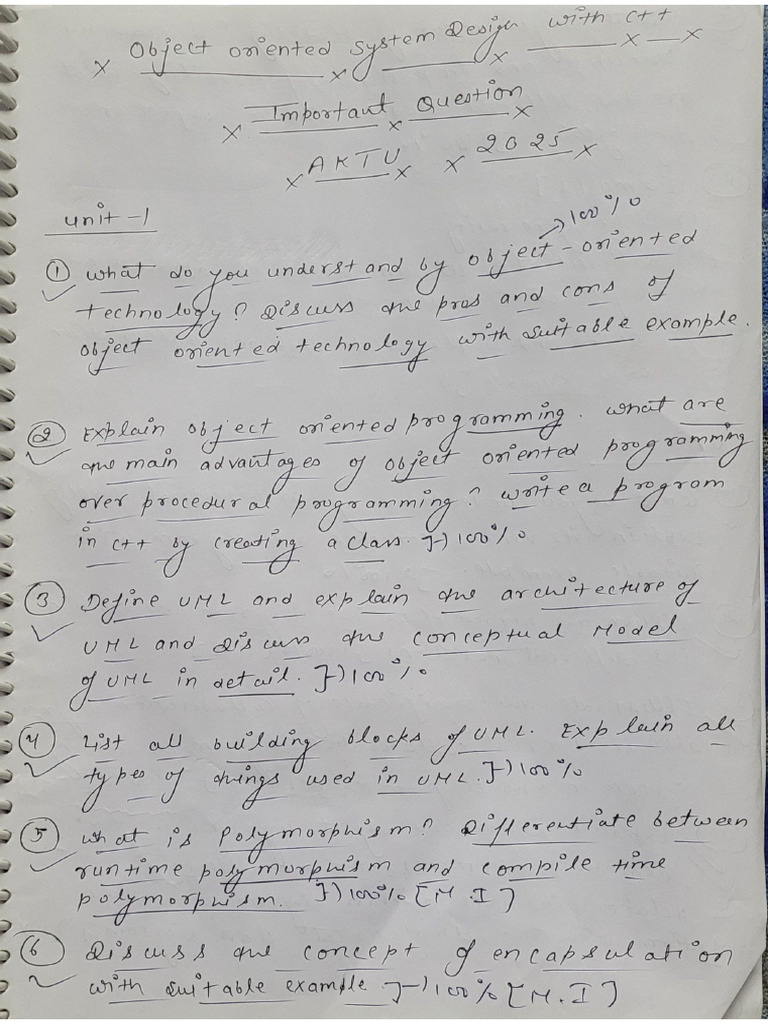 Object oriented System Design with C++
Important Question
AKTU 2025
Unit-1
→100%
① What do you understand by object-oriented
technology? Discuss the pros and cons of
object oriented technology with suitable example.
② Explain object oriented programming. What are
the main advantages of object oriented programming
over procedural programming? Write a program
in C++ by creating a class. }→100%
③ Define UML and explain the architecture of
UML and Discuss the conceptual Model
of UML in detail. }→100%
④ List all building blocks of UML. Explain all
types of things used in UML. }→100%
⑤ What is Polymorphism? Differentiate between
runtime polymorphism and compile time
polymorphism. }→100% [M.I]
⑥ Discuss the concept of encapsulation
with suitable example. }→100% [M.I]